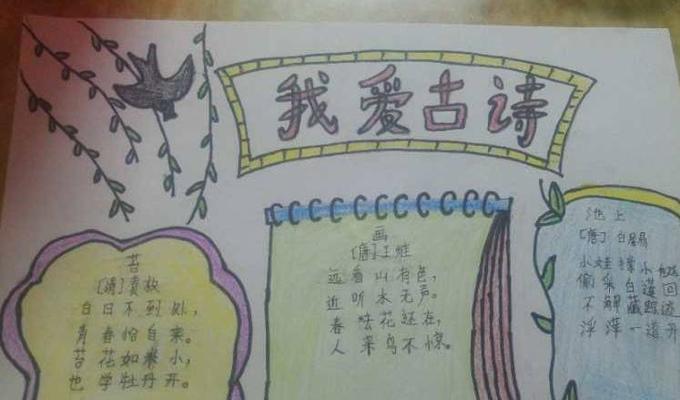 我爱古诗
苔
[清]袁枚
白日不到处，
青春恰自来。
苔花如米小，
也学牡丹开。
画
[唐]王维
远看山有色，
近听水无声。
春去花还在，
人来鸟不惊。
池上
[唐]白居易
小娃撑小
偷采白莲回
不解藏踪迹
浮萍一道开